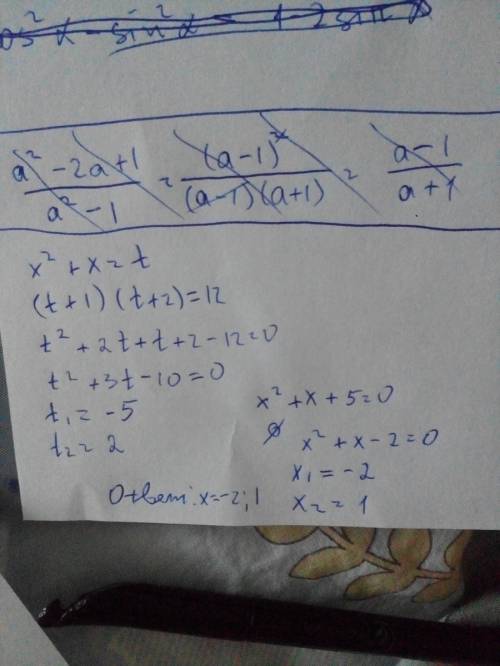 cos²α - sin²α = 1 - 2 sin²α
a² - 2a + 1 / a² - 1 = (a - 1)² / (a - 1)(a + 1) = a - 1 / a + 1
x² + x = t
(t + 1)(t + 2) = 12
t² + 2t + t + 2 - 12 = 0
t² + 3t - 10 = 0
t₁ = -5
t₂ = 2
x² + x + 5 = 0
∅
x² + x - 2 = 0
x₁ = -2
x₂ = 1
Ответ: x = -2; 1